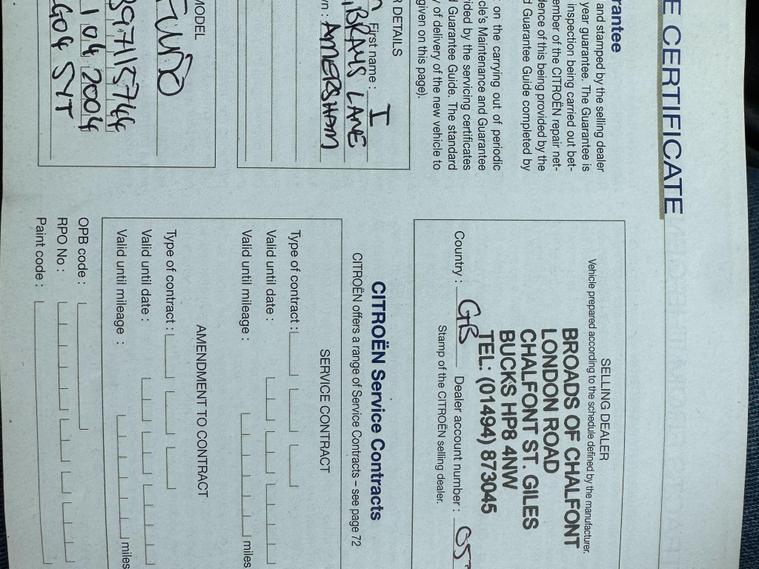 E CERTIFICATE
rantee
and stamped by the selling dealer
year guarantee. The Guarantee is
inspection being carried out bet-
ember of the CITROËN repair net-
ence of this being provided by the
d Guarantee Guide completed by
on the carrying out of periodic
cle's Maintenance and Guarantee
ided by the servicing certificates
d Guarantee Guide. The standard
y of delivery of the new vehicle to
given on this page).
R DETAILS
First name : I
BRAYS LANE
n : AMERSHAM
MODEL
897115744
104 2004
G04 SYT
SELLING DEALER
Vehicle prepared according to the schedule defined by the manufacturer.
BROADS OF CHALFONT
LONDON ROAD
CHALFONT ST. GILES
BUCKS HP8 4NW
TEL: (01494) 873045
Country : GB Dealer account number : 05
Stamp of the CITROËN selling dealer.
CITROËN Service Contracts
CITROËN offers a range of Service Contracts – see page 72
SERVICE CONTRACT
Type of contract :
Valid until date :
Valid until mileage : miles
AMENDMENT TO CONTRACT
Type of contract :
Valid until date :
Valid until mileage : miles
OPB code :
RPO No :
Paint code :